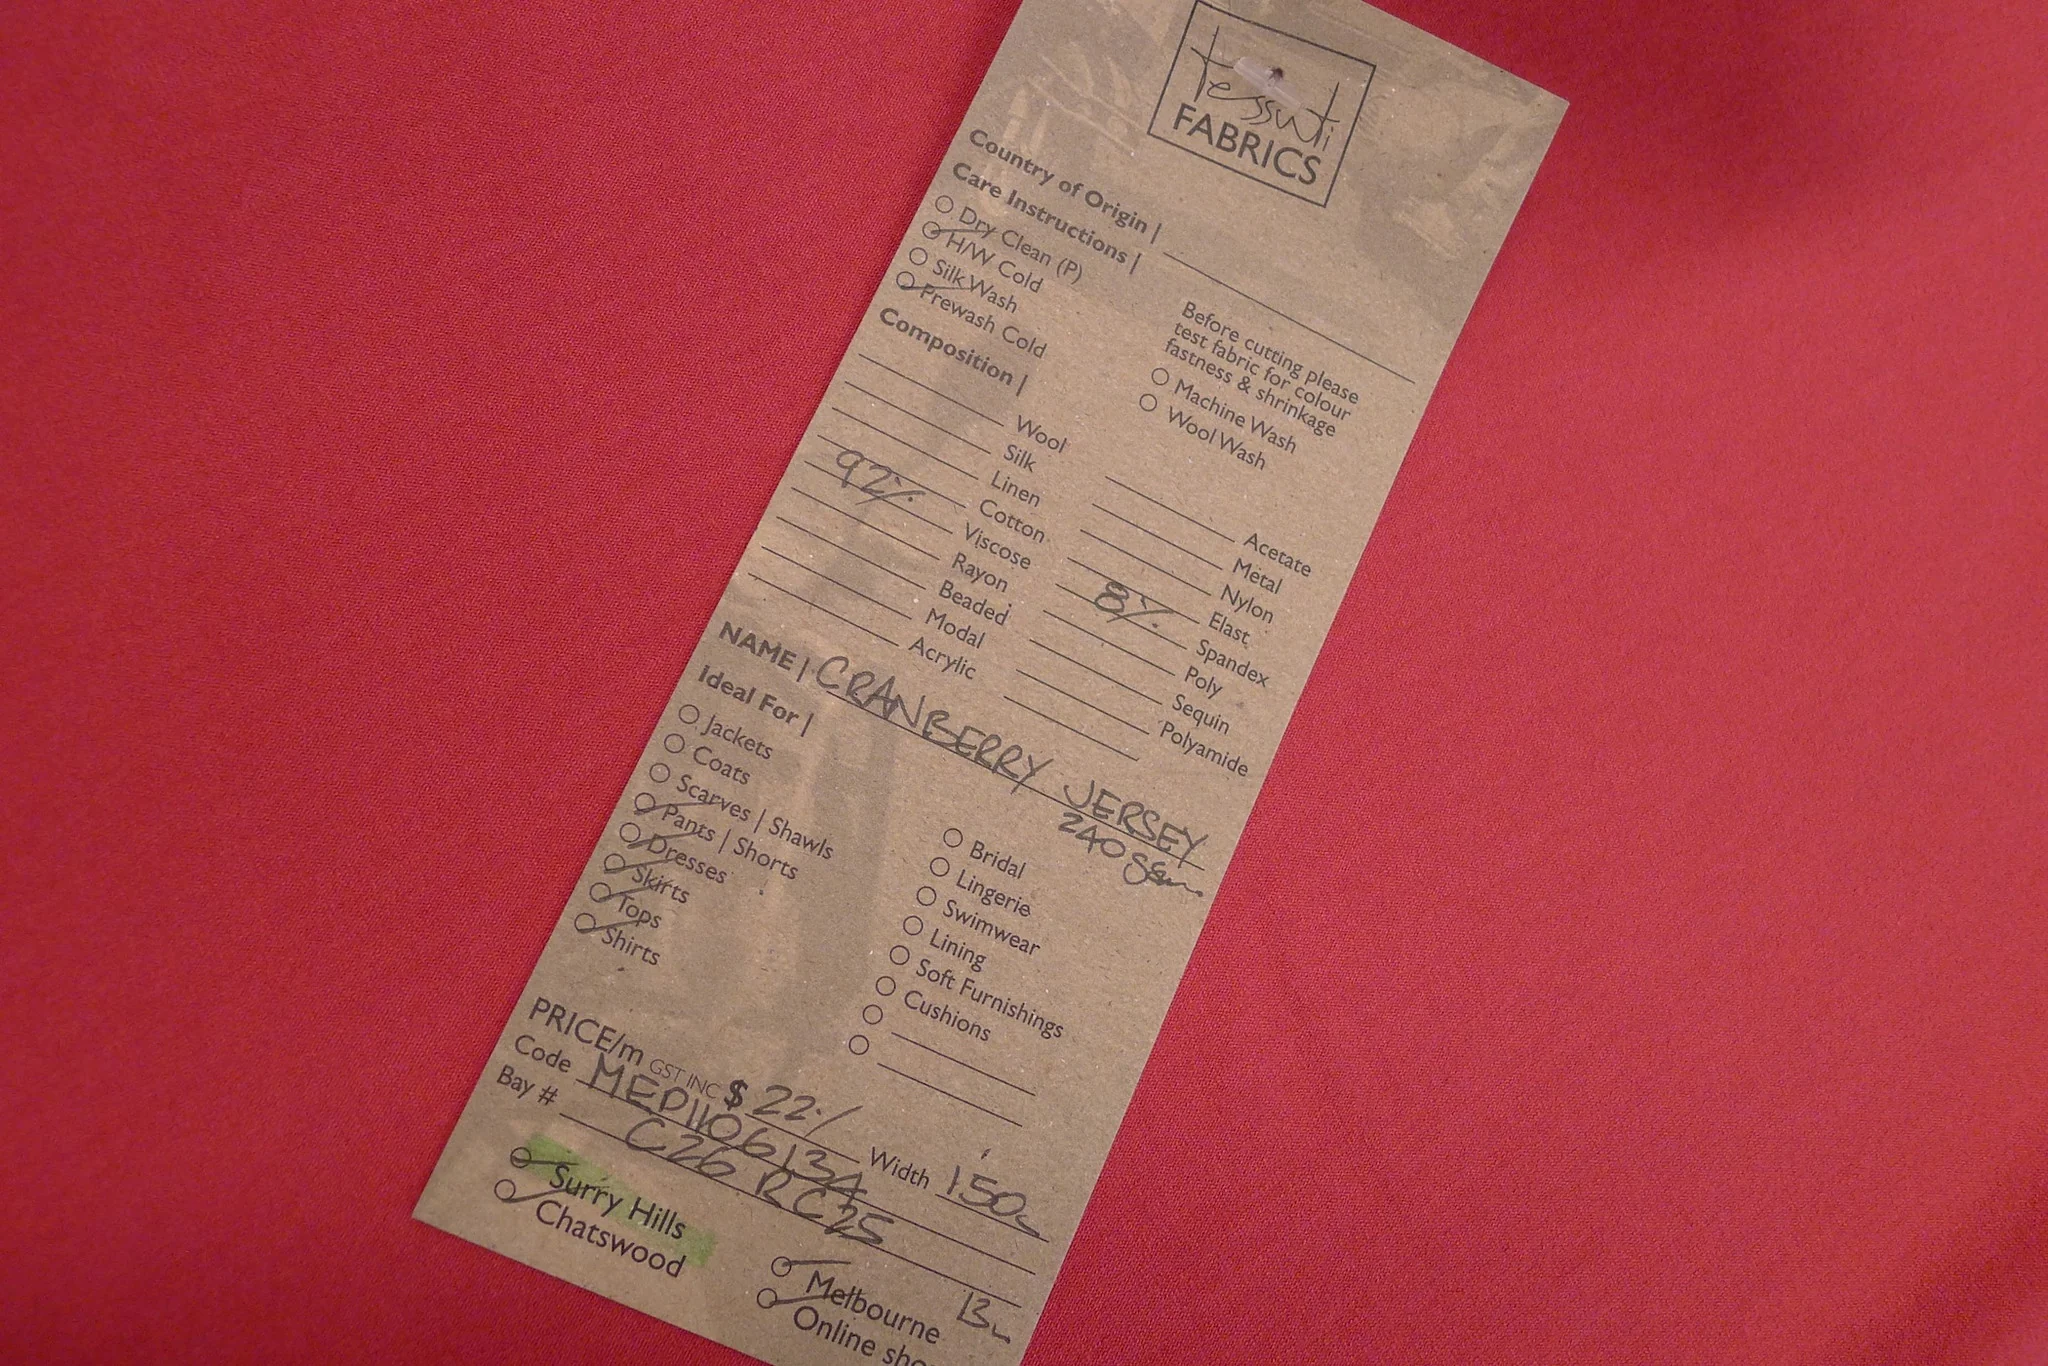 tessuti
FABRICS
Country of Origin |
Care Instructions |
Dry Clean (P)
H/W Cold
Silk Wash
Prewash Cold
Before cutting please
test fabric for colour
fastness & shrinkage
Machine Wash
Wool Wash
Composition |
Wool
Silk
Linen
Cotton
92% Viscose
Rayon
Beaded
Modal
Acrylic
Acetate
Metal
Nylon
Elast
8% Spandex
Poly
Sequin
Polyamide
NAME | CRANBERRY JERSEY
240gsm
Ideal For |
Jackets
Coats
Scarves | Shawls
Pants | Shorts
Dresses
Skirts
Tops
Shirts
Bridal
Lingerie
Swimwear
Lining
Soft Furnishings
Cushions
PRICE/m GST INC $ 22.- Width 150
Code
Bay # C26 RC25
Surry Hills
Chatswood
Melbourne
Online sho